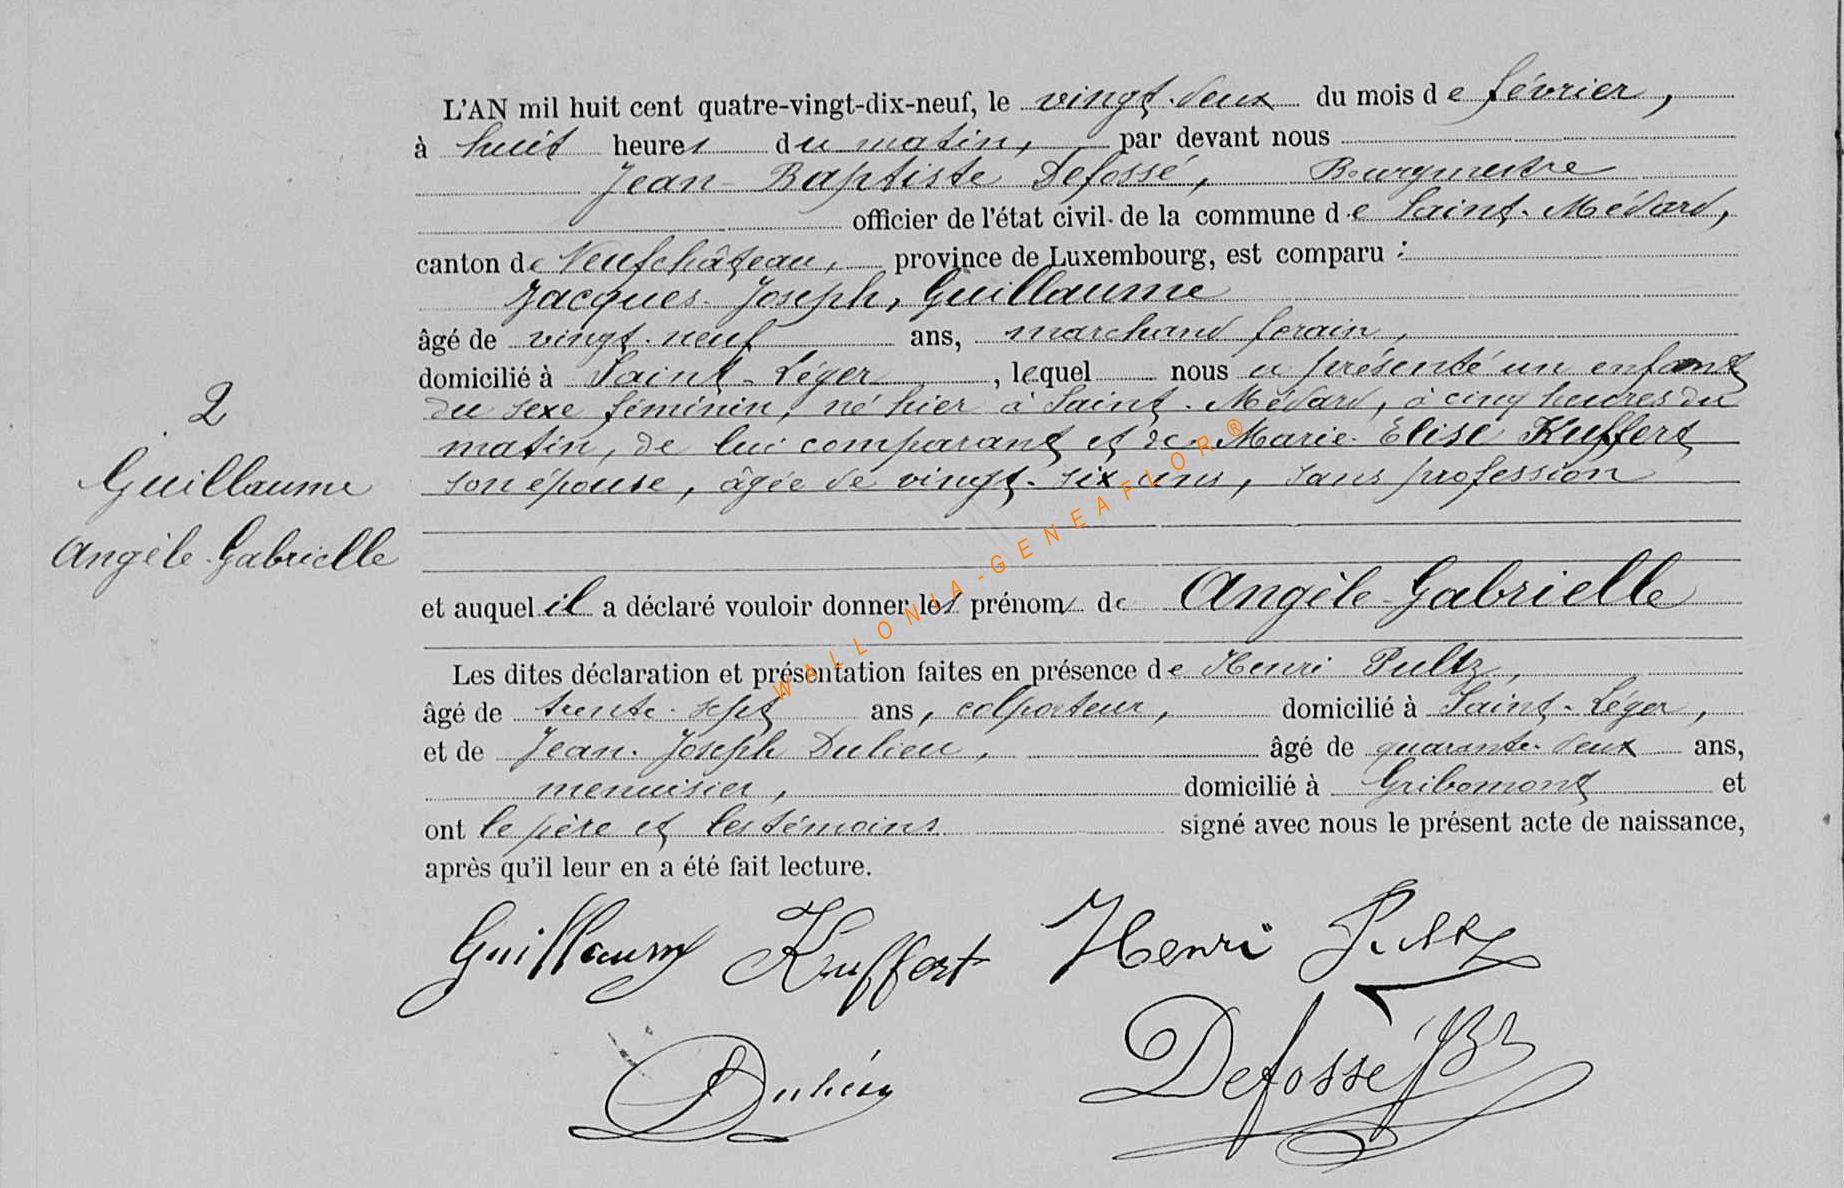 L'AN mil huit cent quatre-vingt-dix-neuf, le vingt-deux du mois de février,
à huit heures du matin, par devant nous
Jean-Baptiste Defossé, Bourgmestre
officier de l'état civil de la commune de Saint-Médard,
canton de Neufchâteau, province de Luxembourg, est comparu :
Jacques-Joseph, Guillaume
âgé de vingt-neuf ans, marchand forain,
domicilié à Saint-Léger, lequel nous a présenté un enfant
du sexe féminin, né hier à Saint-Médard, à cinq heures du
matin, de lui comparant et de Marie-Elise Kuffert
son épouse, âgée de vingt-six ans, sans profession
2
Guillaume
Angèle-Gabrielle
et auquel il a déclaré vouloir donner les prénoms de Angèle-Gabrielle
Les dites déclaration et présentation faites en présence de Henri Pultz,
âgé de trente-sept ans, colporteur, domicilié à Saint-Léger,
et de Jean-Joseph Dulieu, âgé de quarante-deux ans,
menuisier, domicilié à Gribomont et
ont le père et les témoins signé avec nous le présent acte de naissance,
après qu'il leur en a été fait lecture.
Guillaume Kuffert Henri Pultz
Dulieu Defossé JB
WALLONIA-GENEAFLOR®